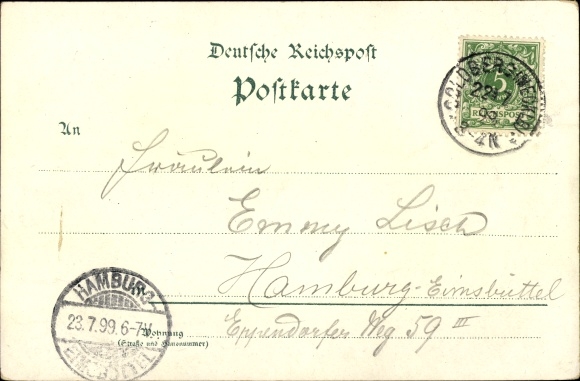 Deutsche Reichspost
Postkarte
5
REICHSPOST
GOLDBERG (MECKLB)
99
3-4N
An
Fräulein
Emmy Lisch
Hamburg-Eimsbüttel
Eppendorfer Weg 59 III
HAMBURG
23.7.99.6-7V.
EIMSBÜTTEL
Wohnung
(Straße und Hausnummer)